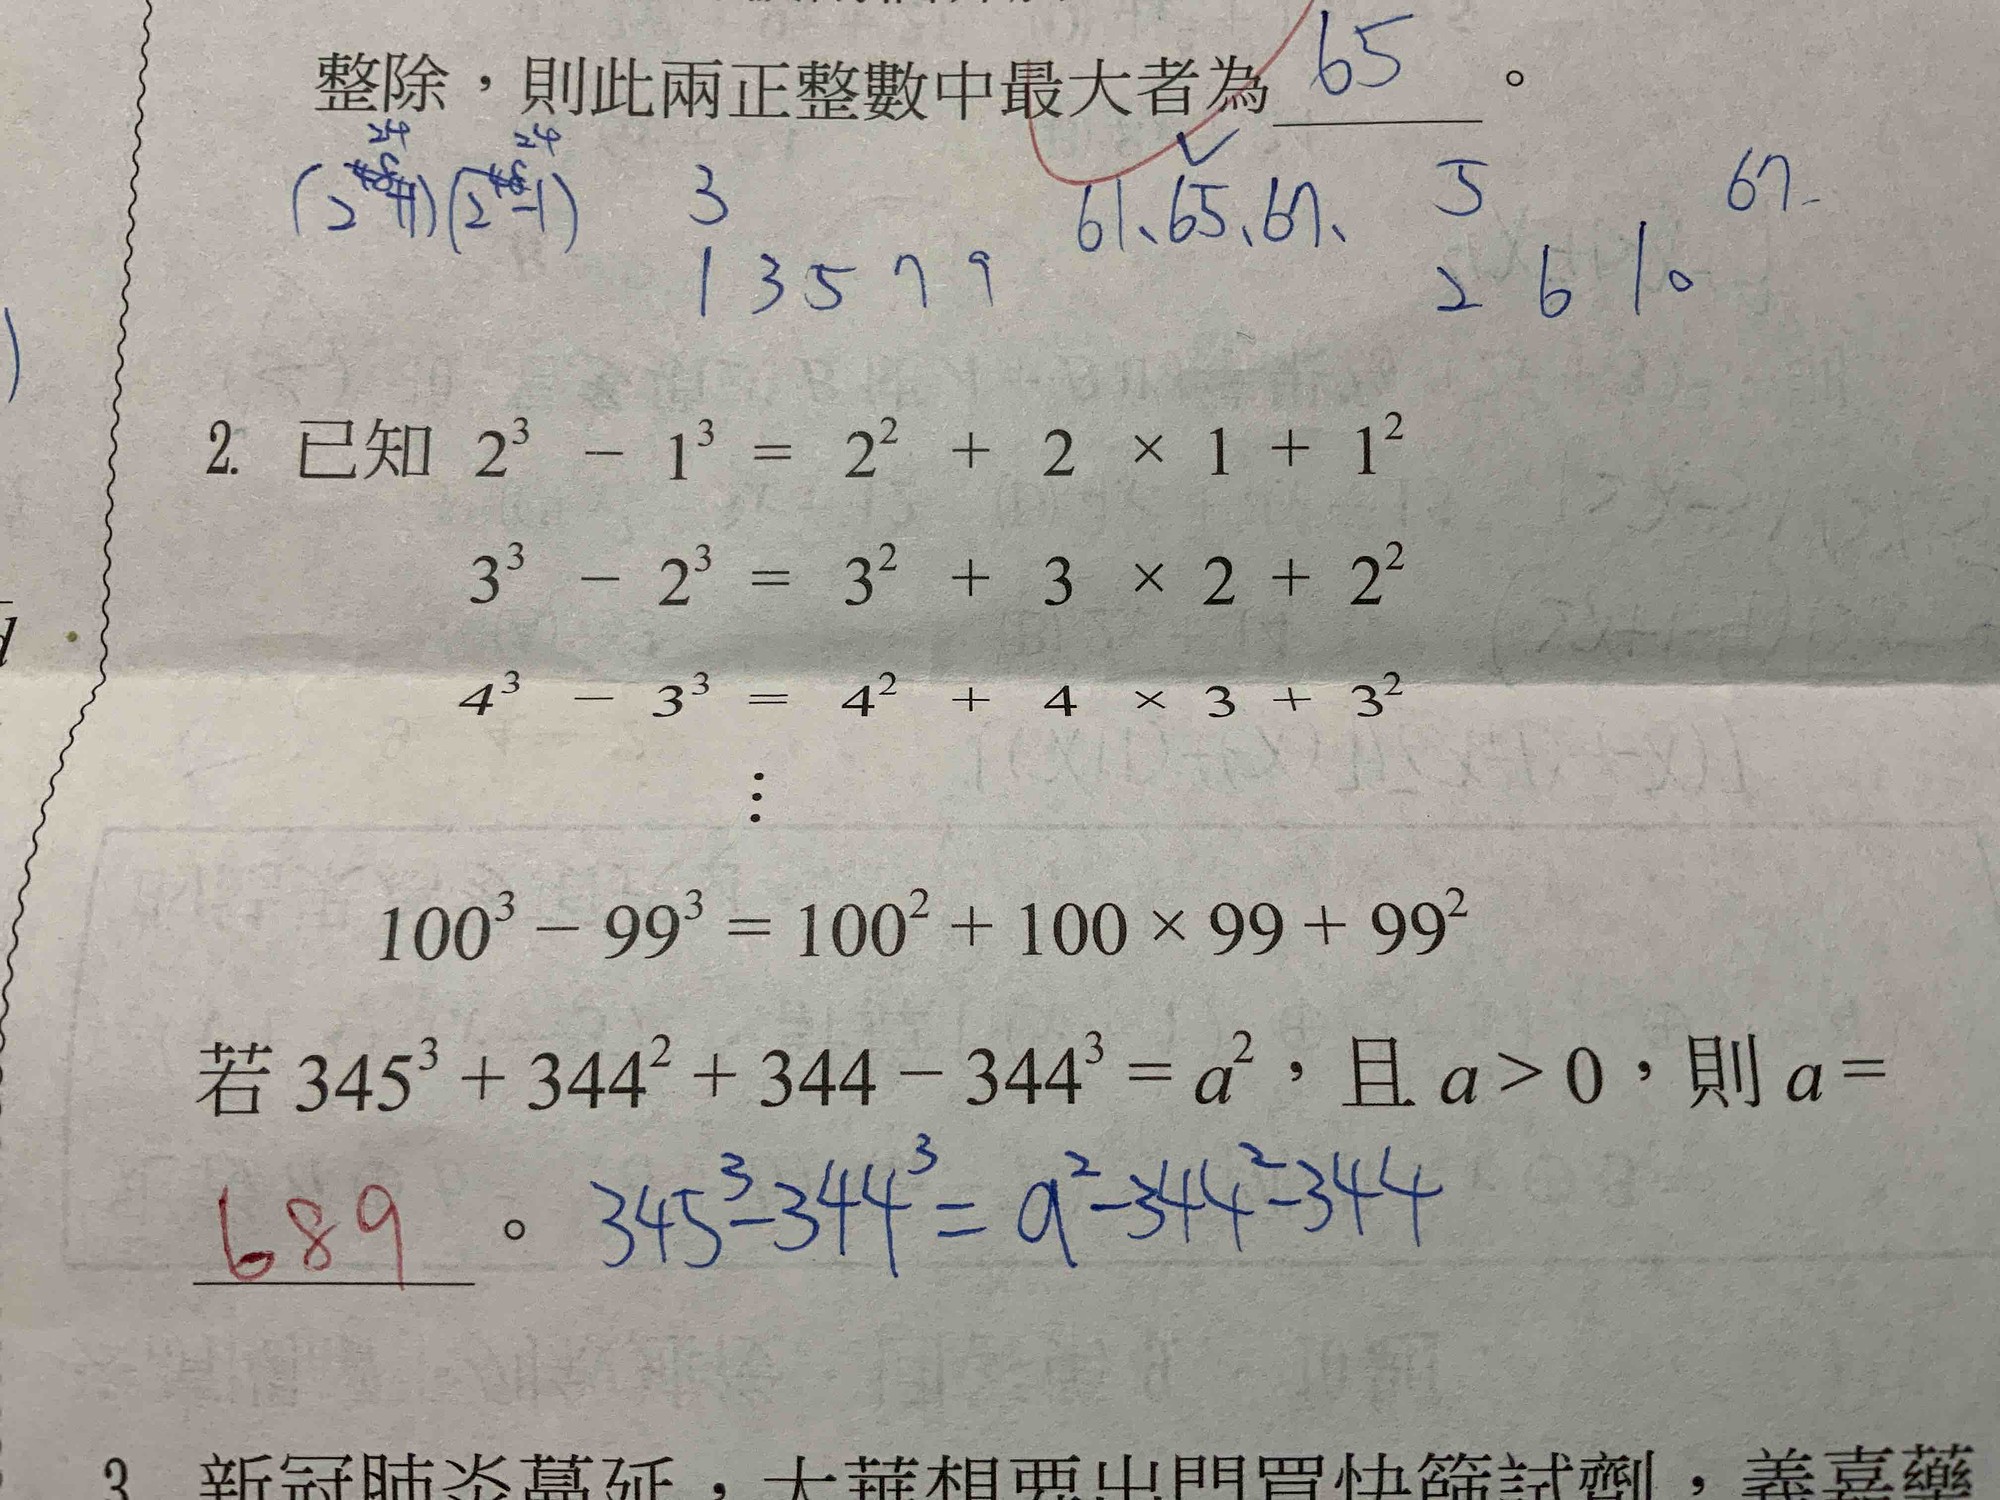 整除，則此兩正整數中最大者為 65 。
24 24
(2⁴⁸+1)(2⁴⁸-1) 3 61、65、67、 5 67
1 3 5 7 9 2 6 10
)
2. 已知 2³ － 1³ ＝ 2² ＋ 2 × 1 ＋ 1²
3³ － 2³ ＝ 3² ＋ 3 × 2 ＋ 2²
d
4³ － 3³ ＝ 4² ＋ 4 × 3 ＋ 3²
⋮
100³ － 99³ ＝ 100² ＋ 100 × 99 ＋ 99²
若 345³ ＋ 344² ＋ 344 － 344³ ＝ a²，且 a > 0，則 a ＝
689 。 345³-344³=a²-344²-344
3. 新冠肺炎蔓延，大華想要出門買快篩試劑，義嘉藥